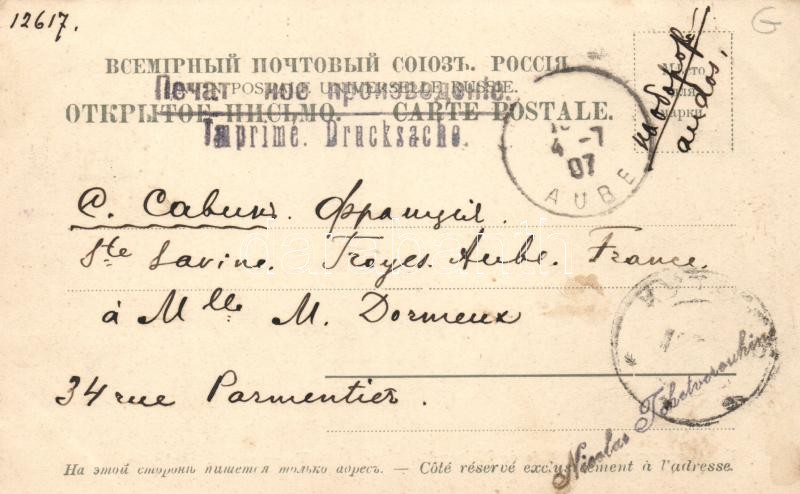 12617.
G
ВСЕМІРНЫЙ ПОЧТОВЫЙ СОЮЗЪ. РОССІЯ.
UNION POSTALE UNIVERSELLE. RUSSIE.
Печатное произведеніе.
ОТКРЫТОЕ ПИСЬМО. CARTE POSTALE.
Imprimé. Drucksache.
Мѣсто
для
марки.
на оборотѣ
au dos.
4 -7
07
AUBE
С. Савинъ. Франція.
Ste Savine. Troyes. Aube. France.
à Mlle M. Dormeux
34 rue Parmentier.
Nicolas Tchetverouhine
На этой сторонѣ пишется только адресъ. — Côté réservé exclusivement à l'adresse.